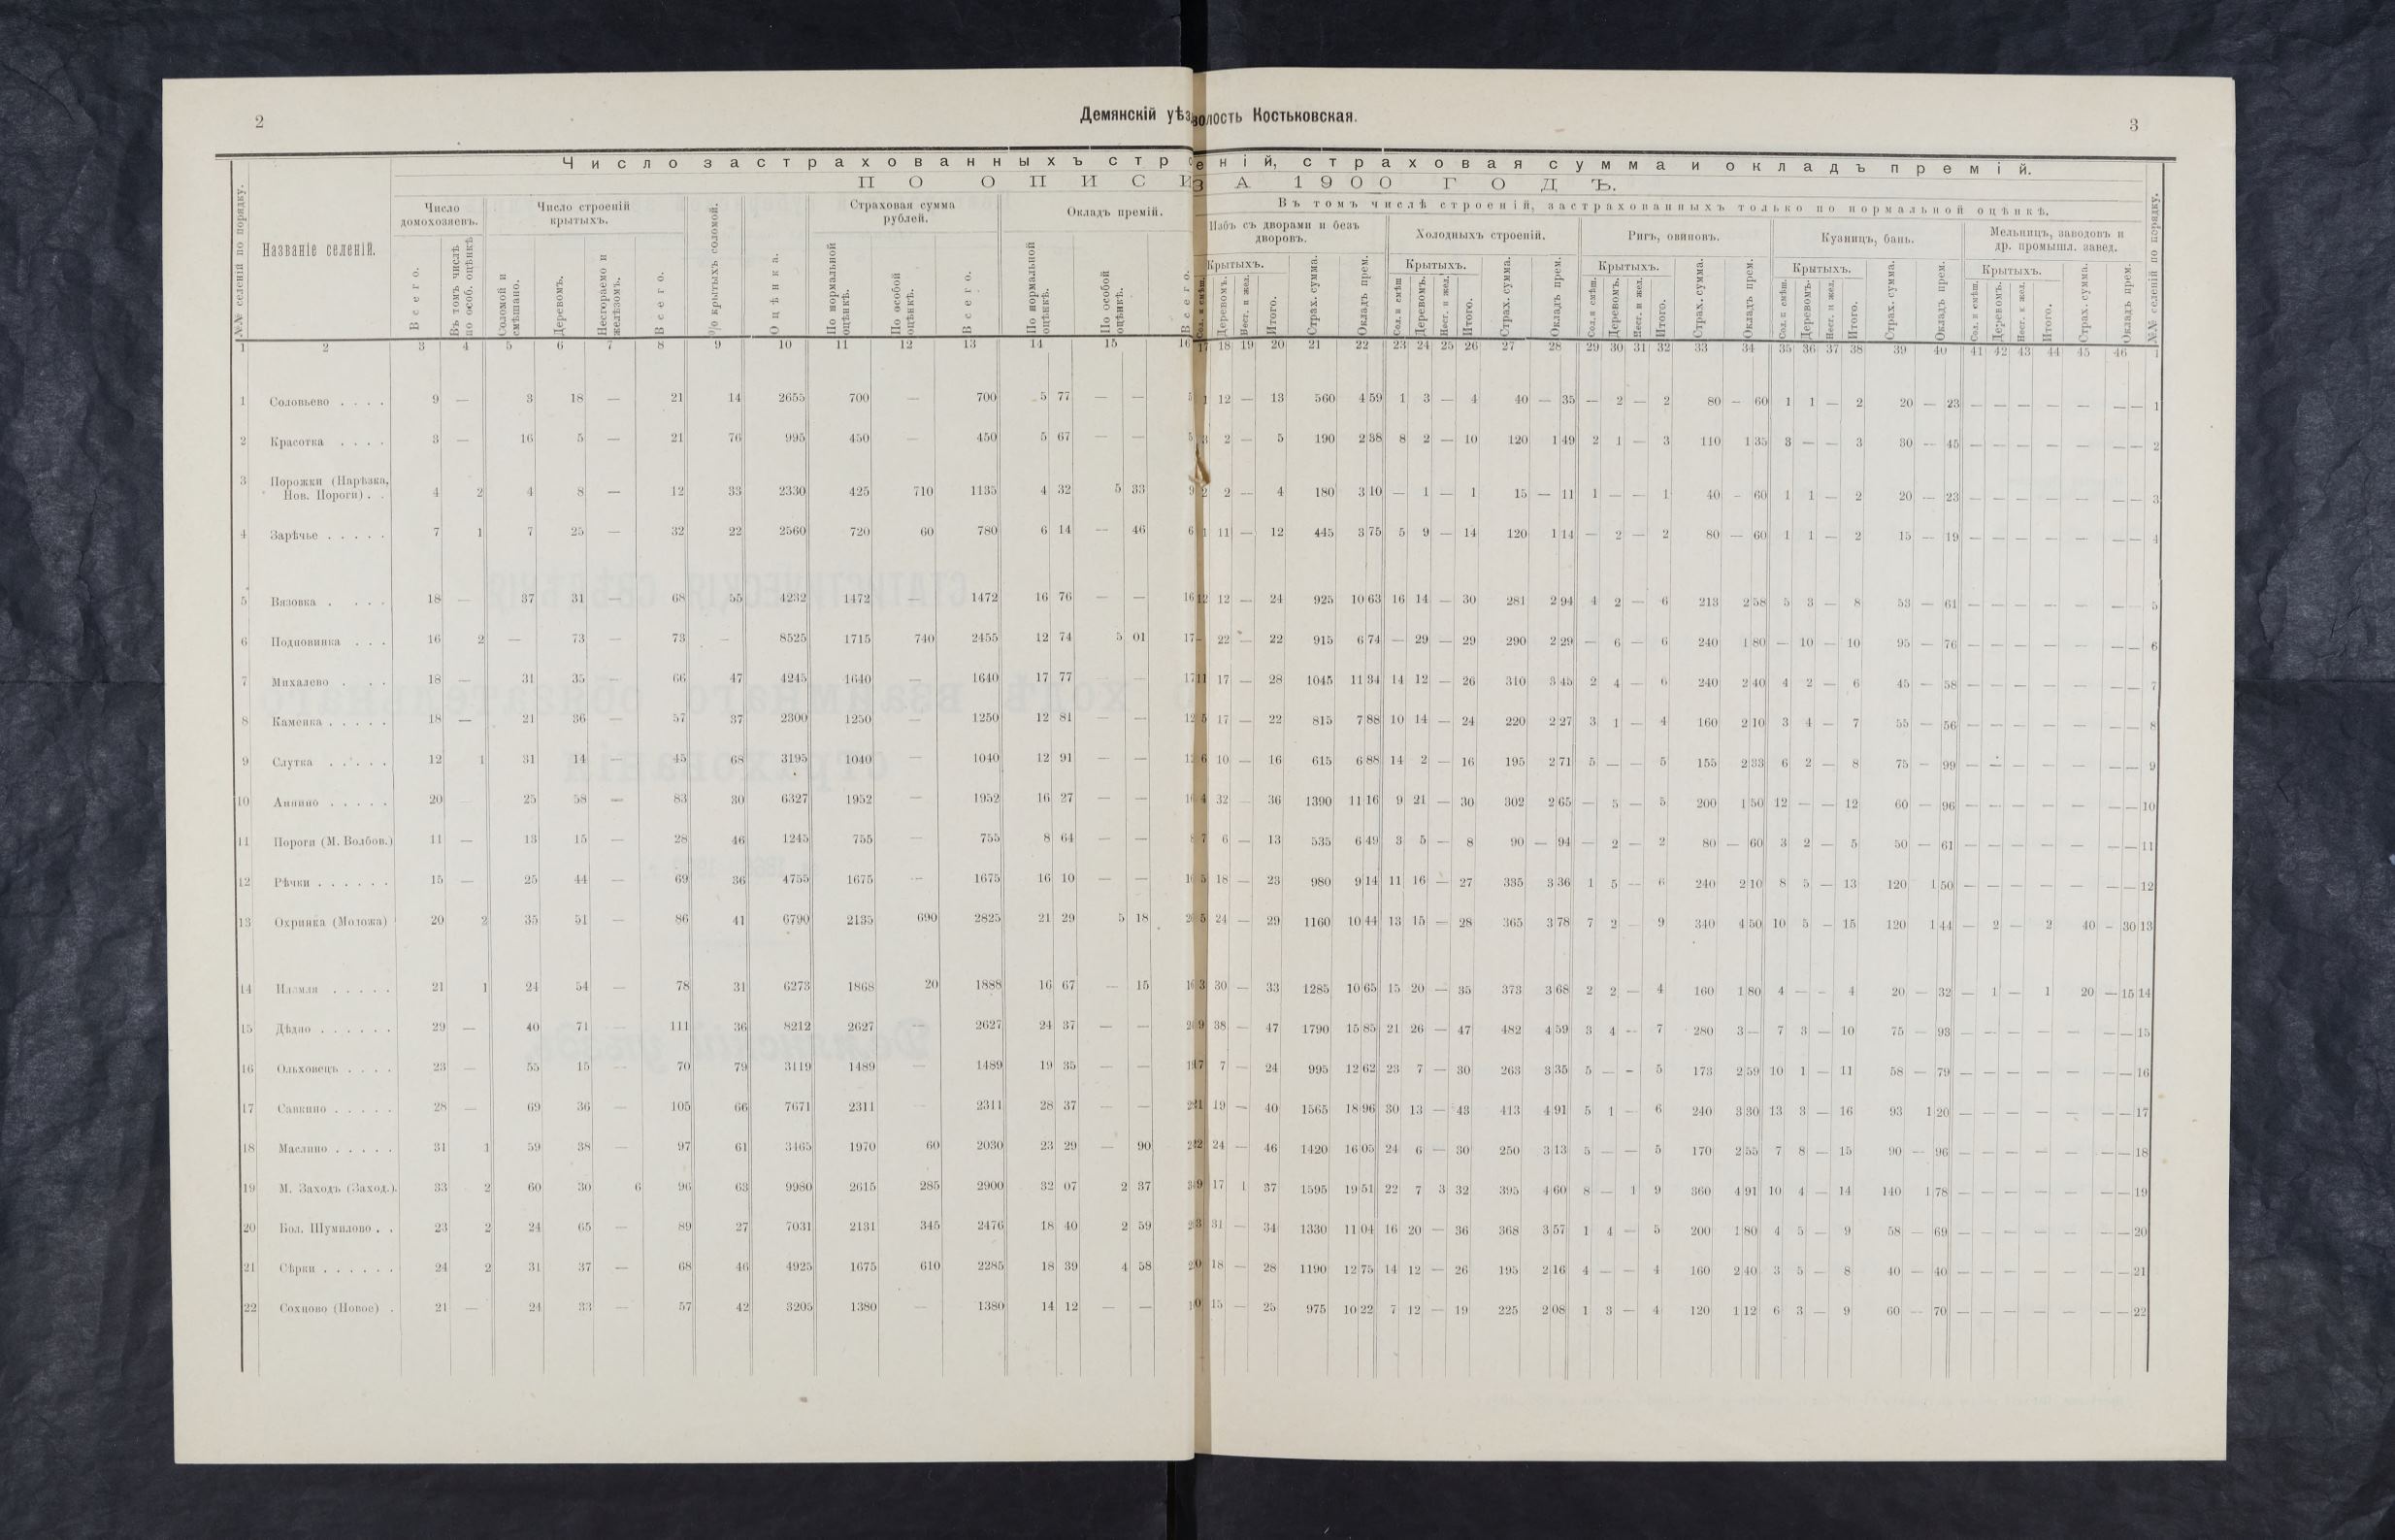 2
Демянскій уѣз
волость Костьковская.
3
Число застрахованныхъ стр
еній, страховая сумма и окладъ премій.
ПО ОПИСИ
ЗА 1900 ГОДЪ.
№№ селеній по порядку.
Названіе селеній.
Число домохозяевъ.
Всего.
Въ томъ числѣ по особ. оцѣнкѣ
Число строеній крытыхъ.
Соломой и смѣшано.
Деревомъ.
Несгораемо и желѣзомъ.
Всего.
% крытыхъ соломой.
Оцѣнка.
Страховая сумма рублей.
По нормальной оцѣнкѣ.
По особой оцѣнкѣ.
Всего.
Окладъ премій.
По нормальной оцѣнкѣ.
По особой оцѣнкѣ.
Всего.
Въ томъ числѣ строеній, застрахованныхъ только по нормальной оцѣнкѣ.
Избъ съ дворами и безъ дворовъ.
Крытыхъ.
Деревомъ. Несг. и жел. Итого. Страх. сумма. Окладъ прем.
Холодныхъ строеній.
Крытыхъ.
Сол. и смѣш Деревомъ. Несг. и жел. Итого. Страх. сумма. Окладъ прем.
Ригъ, овиновъ.
Крытыхъ.
Сол. и смѣш. Деревомъ. Несг. и жел. Итого. Страх. сумма. Окладъ прем.
Кузницъ, бань.
Крытыхъ.
Сол. и смѣш. Деревомъ. Несг. и жел. Итого. Страх. сумма. Окладъ прем.
Мельницъ, заводовъ и др. промышл. завед.
Крытыхъ.
Сол. и смѣш. Деревомъ. Несг. и жел. Итого. Страх. сумма. Окладъ прем.
№№ селеній по порядку.
1 2 3 4 5 6 7 8 9 10 11 12 13 14 15 16 17 18 19 20 21 22 23 24 25 26 27 28 29 30 31 32 33 34 35 36 37 38 39 40 41 42 43 44 45 46 1
1 Соловьево . . . . 9 — 3 18 — 21 14 2655 700 — 700 5 77 — — 5 1 12 — 13 560 4 59 1 3 — 4 40 — 35 — 2 — 2 80 — 60 1 1 — 2 20 — 23 — — — — — — — 1
2 Красотка . . . . 3 — 16 5 — 21 76 995 450 — 450 5 67 — — 5 3 2 — 5 190 2 38 8 2 — 10 120 1 49 2 1 — 3 110 1 35 3 — — 3 30 — 45 — — — — — — — 2
3 Порожки (Нарѣзка, Нов. Пороги) . . 4 2 4 8 — 12 33 2330 425 710 1135 4 32 5 33 9 2 2 — 4 180 3 10 — 1 — 1 15 — 11 1 — — 1 40 — 60 1 1 — 2 20 — 23 — — — — — — — 3
4 Зарѣчье . . . . . 7 1 7 25 — 32 22 2560 720 60 780 6 14 — 46 6 1 11 — 12 445 3 75 5 9 — 14 120 1 14 — 2 — 2 80 — 60 1 1 — 2 15 — 19 — — — — — — — 4
5 Вязовка . . . . 18 — 37 31 — 68 55 4232 1472 — 1472 16 76 — — 16 12 12 — 24 925 10 63 16 14 — 30 281 2 94 4 2 — 6 213 2 58 5 3 — 8 53 — 61 — — — — — — — 5
6 Подновинка . . . 16 2 — 73 — 73 — 8525 1715 740 2455 12 74 5 01 17 — 22 — 22 915 6 74 — 29 — 29 290 2 29 — 6 — 6 240 1 80 — 10 — 10 95 — 76 — — — — — — — 6
7 Михалево . . . 18 — 31 35 — 66 47 4245 1640 — 1640 17 77 — — 17 11 17 — 28 1045 11 34 14 12 — 26 310 3 45 2 4 — 6 240 2 40 4 2 — 6 45 — 58 — — — — — — — 7
8 Каменка . . . . . 18 — 21 36 — 57 37 2300 1250 — 1250 12 81 — — 12 5 17 — 22 815 7 88 10 14 — 24 220 2 27 3 1 — 4 160 2 10 3 4 — 7 55 — 56 — — — — — — — 8
9 Слутка . . . . . 12 1 31 14 — 45 68 3195 1040 — 1040 12 91 — — 12 6 10 — 16 615 6 88 14 2 — 16 195 2 71 5 — — 5 155 2 33 6 2 — 8 75 — 99 — — — — — — — 9
10 Аннино . . . . . 20 — 25 58 — 83 30 6327 1952 — 1952 16 27 — — 16 4 32 — 36 1390 11 16 9 21 — 30 302 2 65 — 5 — 5 200 1 50 12 — — 12 60 — 96 — — — — — — — 10
11 Пороги (М. Волбов.) 11 — 13 15 — 28 46 1245 755 — 755 8 64 — — 8 7 6 — 13 535 6 49 3 5 — 8 90 — 94 — 2 — 2 80 — 60 3 2 — 5 50 — 61 — — — — — — — 11
12 Рѣчки . . . . . . 15 — 25 44 — 69 36 4755 1675 — 1675 16 10 — — 16 5 18 — 23 980 9 14 11 16 — 27 335 3 36 1 5 — 6 240 2 10 8 5 — 13 120 1 50 — — — — — — — 12
13 Охринка (Моложа) 20 2 35 51 — 86 41 6790 2135 690 2825 21 29 5 18 26 5 24 — 29 1160 10 44 13 15 — 28 365 3 78 7 2 — 9 340 4 50 10 5 — 15 120 1 44 — 2 — 2 40 — 30 13
14 Пламля . . . . . 21 1 24 54 — 78 31 6273 1868 20 1888 16 67 — 15 16 3 30 — 33 1285 10 65 15 20 — 35 373 3 68 2 2 — 4 160 1 80 4 — — 4 20 — 32 — 1 — 1 20 — 15 14
15 Дѣдно . . . . . . 29 — 40 71 — 111 36 8212 2627 — 2627 24 37 — — 9 38 — 47 1790 15 85 21 26 — 47 482 4 59 3 4 — 7 280 3 — 7 3 — 10 75 — 93 — — — — — — — 15
16 Ольховецъ . . . . 23 — 55 15 — 70 79 3119 1489 — 1489 19 35 — — 7 — 24 995 12 62 23 7 — 30 263 3 35 5 — — 5 173 2 59 10 1 — 11 58 — 79 — — — — — — — 16
17 Савкино . . . . . 28 — 69 36 — 105 66 7671 2311 — 2311 28 37 — — 19 — 40 1565 18 96 30 13 — 43 413 4 91 5 1 — 6 240 3 30 13 3 — 16 93 1 20 — — — — — — — 17
18 Маслино . . . . . 31 1 59 38 — 97 61 3465 1970 60 2030 23 29 — 90 24 — 46 1420 16 05 24 6 — 30 250 3 13 5 — — 5 170 2 55 7 8 — 15 90 — 96 — — — — — — — 18
19 М. Заходъ (Заход.). 33 2 60 30 6 96 63 9980 2615 285 2900 32 07 2 37 17 1 37 1595 19 51 22 7 3 32 395 4 60 8 — 1 9 360 4 91 10 4 — 14 140 1 78 — — — — — — — 19
20 Бол. Шумилово . . 23 2 24 65 — 89 27 7031 2131 345 2476 18 40 2 59 31 — 34 1330 11 04 16 20 — 36 368 3 57 1 4 — 5 200 1 80 4 5 — 9 58 — 69 — — — — — — — 20
21 Сѣрки . . . . . . 24 2 31 37 — 68 46 4925 1675 610 2285 18 39 4 58 18 — 28 1190 12 75 14 12 — 26 195 2 16 4 — — 4 160 2 40 3 5 — 8 40 — 40 — — — — — — — 21
22 Сохново (Новое) . 21 — 24 33 — 57 42 3205 1380 — 1380 14 12 — — 15 — 25 975 10 22 7 12 — 19 225 2 08 1 3 — 4 120 1 12 6 3 — 9 60 — 70 — — — — — — — 22